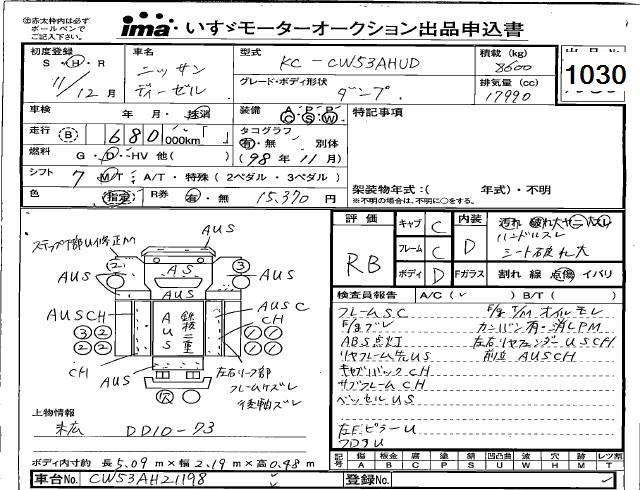 ㊟赤太枠内は必ず
ボールペンで
ご記入下さい。
ima いすゞモーターオークション出品申込書
初度登録
S・H・R
11/12月
車名
ニッサン
ディーゼル
型式
KC-CW53AHUD
積載 (kg)
8600
グレード・ボディ形状
ダンプ
排気量 (cc)
17990
1030
車検
年 月・抹消
装備
A C
P S
P W
特記事項
走行 B 680 000km
タコグラフ
有・無 別体
(98年11月)
燃料
G・D・HV 他( )
シフト 7 M/T・A/T・特殊(2ペダル・3ペダル)
色 (指定) R券 有・無 15,370円
架装物年式:( 年式)・不明
※不明の場合は、不明に○をする。
評価
RB
キャブ C
フレーム C
ボディ D
内装 D
Fガラス
ハンドルスレ
シート破れ大
割れ 線 点傷 イバリ
検査員報告 A/C( ✓ ) B/T( )
フレームSC
ABS点灯
リヤフレーム先US
キャブバックCH
サブフレームCH
ベッセルUS
左FピラーU
フロアU
T/Mオイルモレ
左右リヤフェンダーUSCH
AUSCH
ステップ下部U1修正M
AUS
AUS
AS
AUS
AUSCH
AUS
鉄板二重
AUSC
CH
CH
AUS
左右リーフ部
フレームケズレ
後軸ズレ
上物情報
末広 DD10-73
ボディ内寸約 長5.09m×幅2.19m×高0.48m
記号
傷 A
板金 B
腐 C
塗 P
錆 S
凹凸曲 U
波 W
穴 H
跡 M
レツ割 T
車台No. CW53AH21198
登録No.